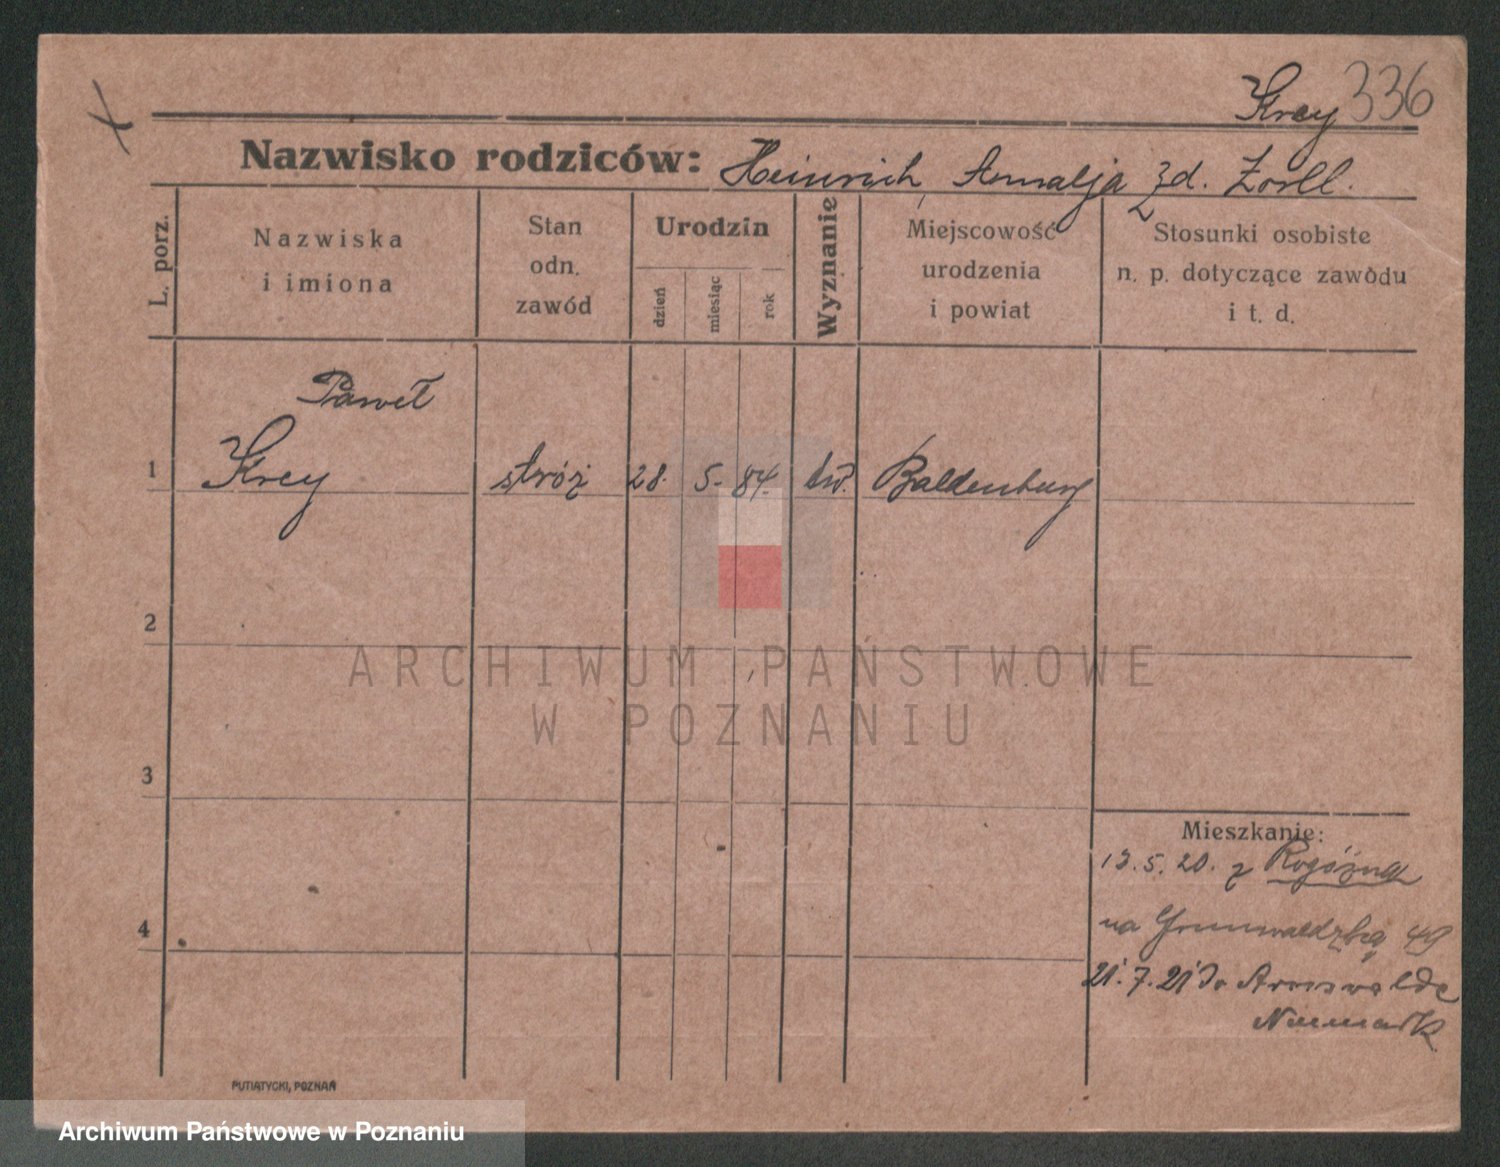 Krey 336
Nazwisko rodziców: Heinrich, Amalja zd.
L. porz.
Nazwiska
i imiona
Stan
odn.
zawód
Urodzin
dzień
miesiąc
rok
Wyznanie
Miejscowość
urodzenia
i powiat
Stosunki osobiste
n. p. dotyczące zawodu
i t. d.
Paweł
1 Krey stróż 28. 5. 84. ew. Baldenburg
2
3
4
Mieszkanie:
13.5.20. z Rogóźna
na Grunwaldzką 49
21.7.21 do Arnswalde
Neumark
PUTIATYCKI, POZNAŃ
ARCHIWUM PAŃSTWOWE
W POZNANIU
Archiwum Państwowe w Poznaniu